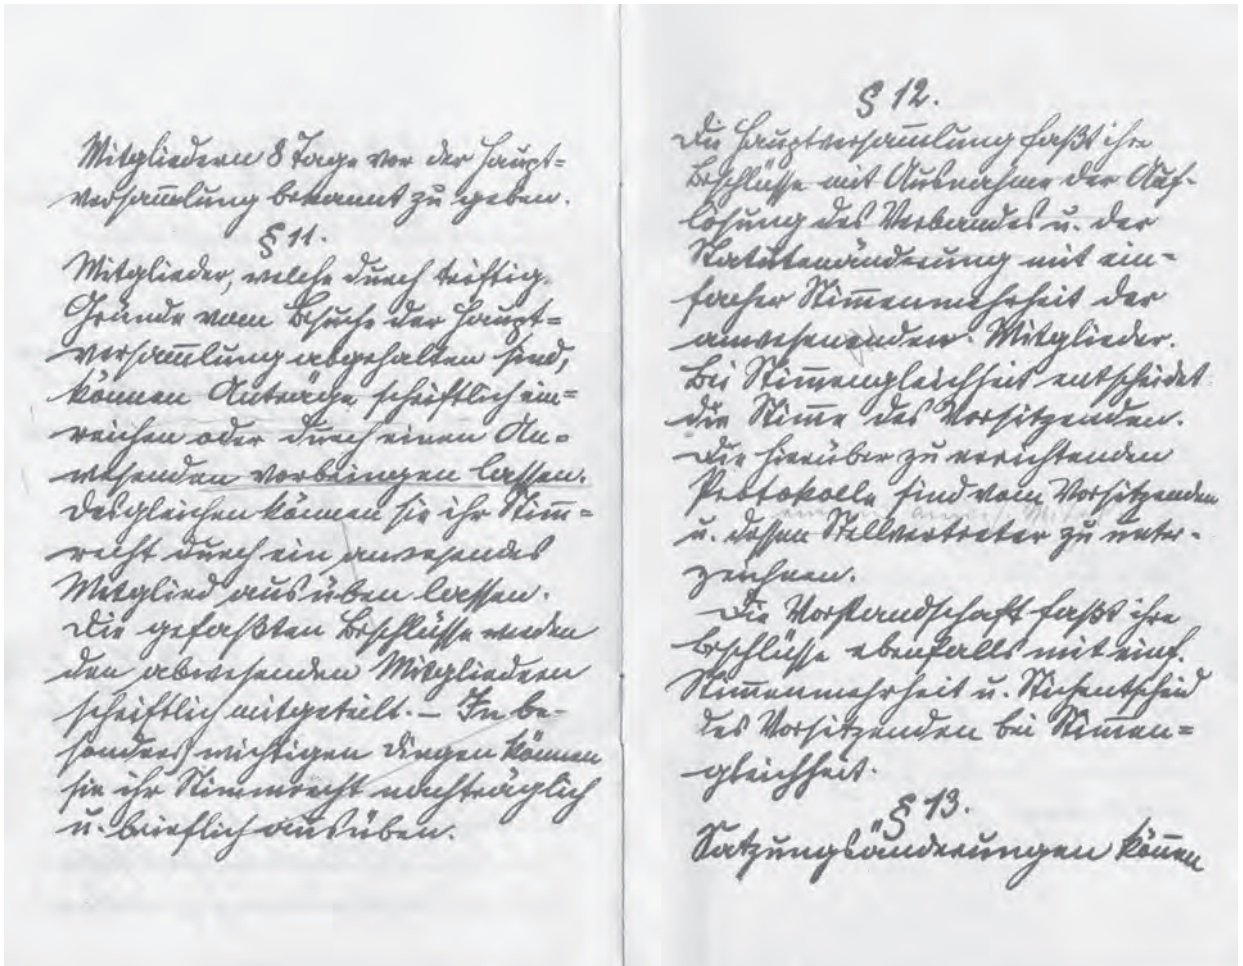 Mitgliedern 8 Tage vor der Haupt=
versam̄lung bekannt zu geben.
§ 11.
Mitglieder, welche durch triftig.
Gründe vom Besuche der Haupt=
versam̄lung abgehalten sind,
können Anträge schriftlich ein=
reichen oder durch einen An=
wesenden vorbringen lassen.
Desgleichen können sie ihr Stim̄=
recht durch ein anwesendes
Mitglied ausüben lassen.
Die gefaßten Beschlüsse werden
den abwesenden Mitgliedern
schriftlich mitgeteilt. – In be-
sonders wichtigen Dingen können
sie ihr Stimmrecht nachträglich
u. brieflich ausüben.
§ 12.
Die Hauptversam̄lung faßt ihre
Beschlüsse mit Ausnahme der Auf-
lösung des Verbandes u. der
Statutenänderung mit ein=
facher Stim̄enmehrheit der
anwesenenden Mitglieder.
Bei Stim̄engleichheit entscheidet
die Stim̄e des Vorsitzenden.
Die hierüber zu errichtenden
Protokolle sind vom Vorsitzenden
u. dessen Stellvertreter zu unter-
zeichnen.
Die Vorstandschaft faßt ihre
Beschlüsse ebenfalls mit einf.
Stim̄enmehrheit u. Stichentscheid
des Vorsitzenden bei Stim̄en=
gleichheit.
§ 13.
Satzungsänderungen kön̄en